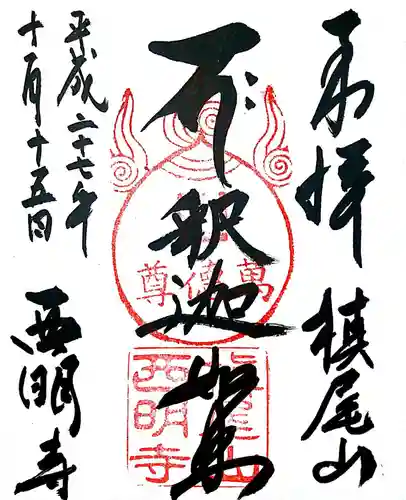 奉拝
槙尾山
釈迦如来
平成二十七年
十一月十五日
西明寺
槙尾山
西明寺